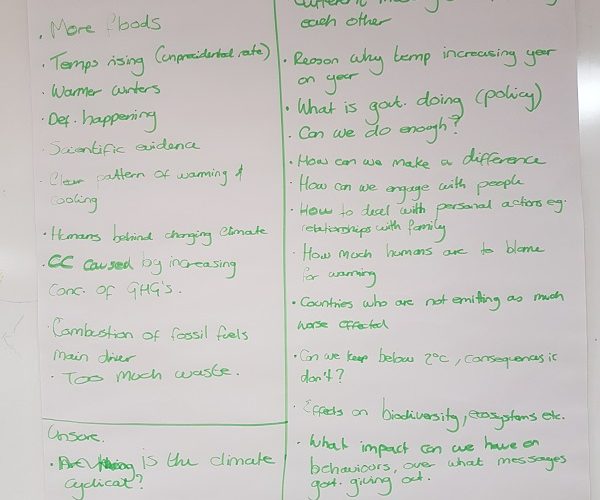 · More floods
· Temps rising (unpresidented rate)
· Warmer winters
· Def. happening
· Scientific evidence
· Clear pattern of warming &
cooling
· Humans behind changing climate
· CC caused by increasing
conc. of GHG's.
· Combustion of fossil fuels
main driver
· Too much waste.
Unsure.
· is the climate
cyclical?
each other
· Reason why temp increasing year
on year
· What is govt. doing (policy)
· Can we do enough?
· How can we make a difference
· How can we engage with people
· How to deal with personal actions eg.
relationships with family
· How much humans are to blame
for warming
· Countries who are not emitting as much
worse effected
· Can we keep below 2°c, consequences if
don't?
· Effects on biodiversity, ecosystems etc.
· What impact can we have on
behaviours, over what messages
govt. giving out.